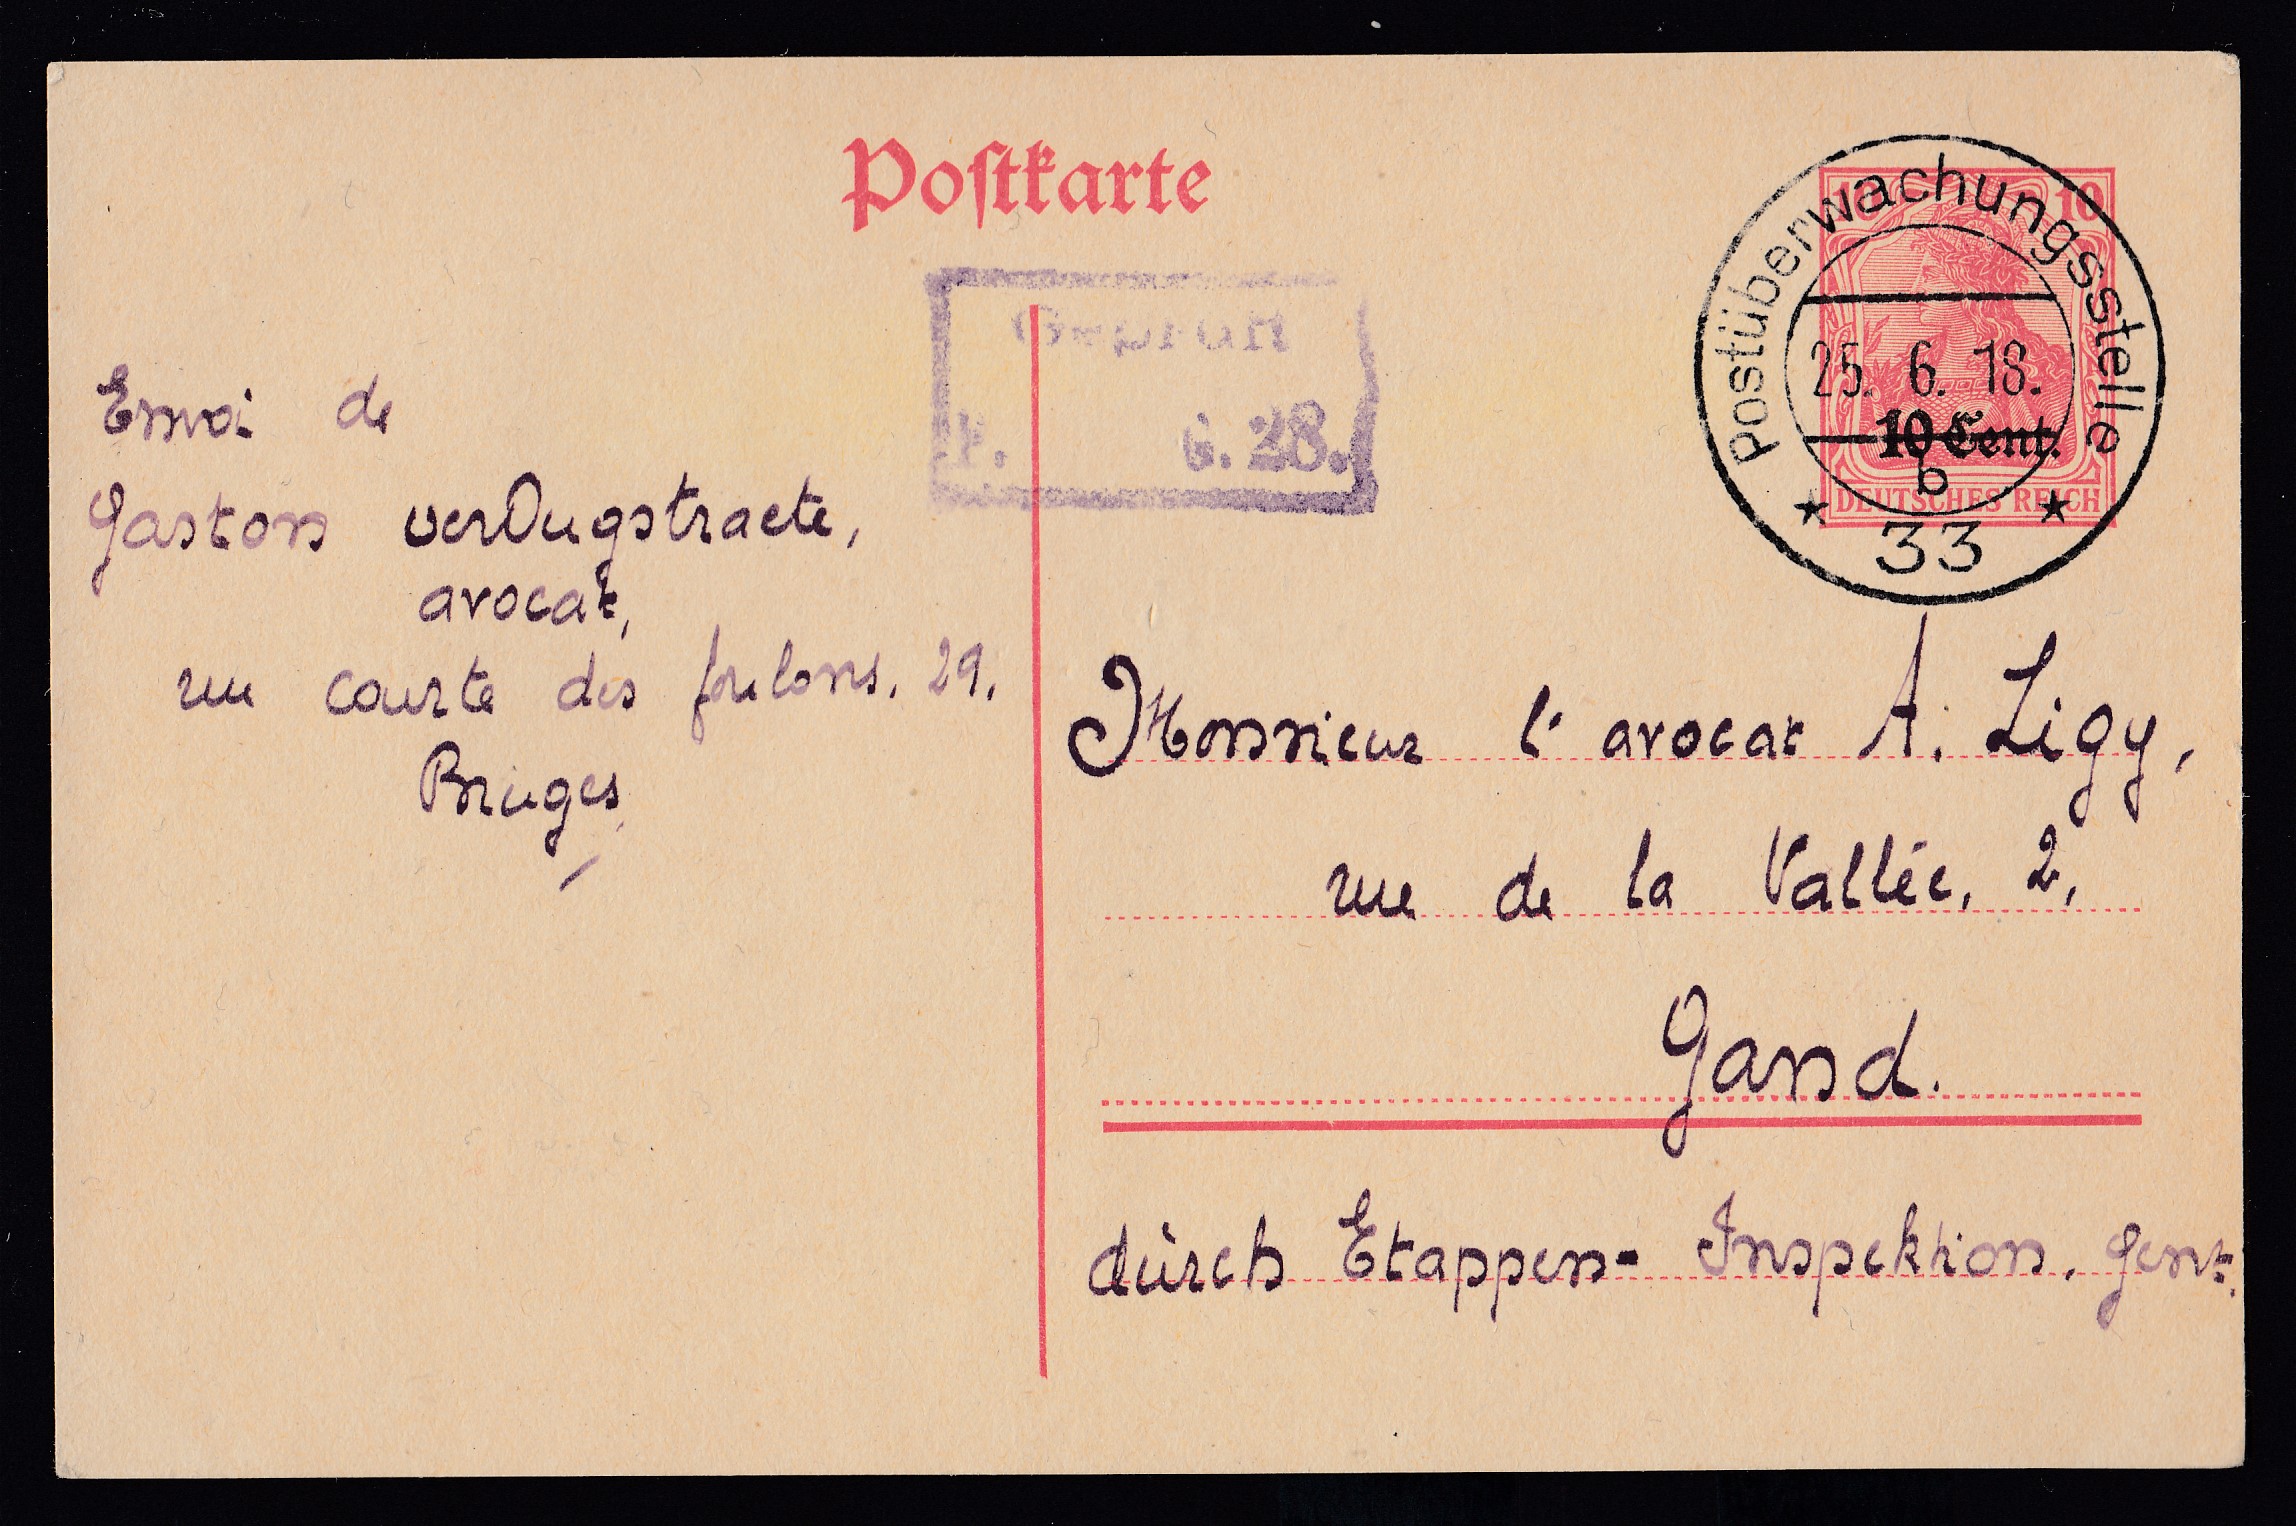 Postkarte
Geprüft
P. 6. 28.
Postüberwachungsstelle
10 10
25. 6. 18.
10 Cent.
b
DEUTSCHES REICH
33
Envoi de
Gaston verOugstraete,
avocat,
rue courte des foulons. 29.
Bruges.
Monsieur l'avocat A. Ligy,
rue de la Vallée. 2.
Gand.
dùrch Etappen- Inspektion. Gent.